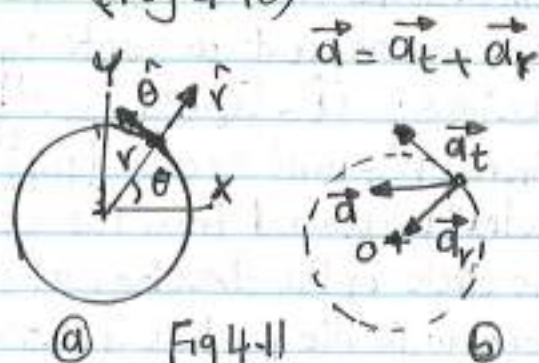 (Fig 4-10)
a⃗ = a⃗t + a⃗r
Y θ̂ r̂
r θ X
a⃗t
a⃗
O a⃗r
ⓐ Fig 4-11 ⓑ